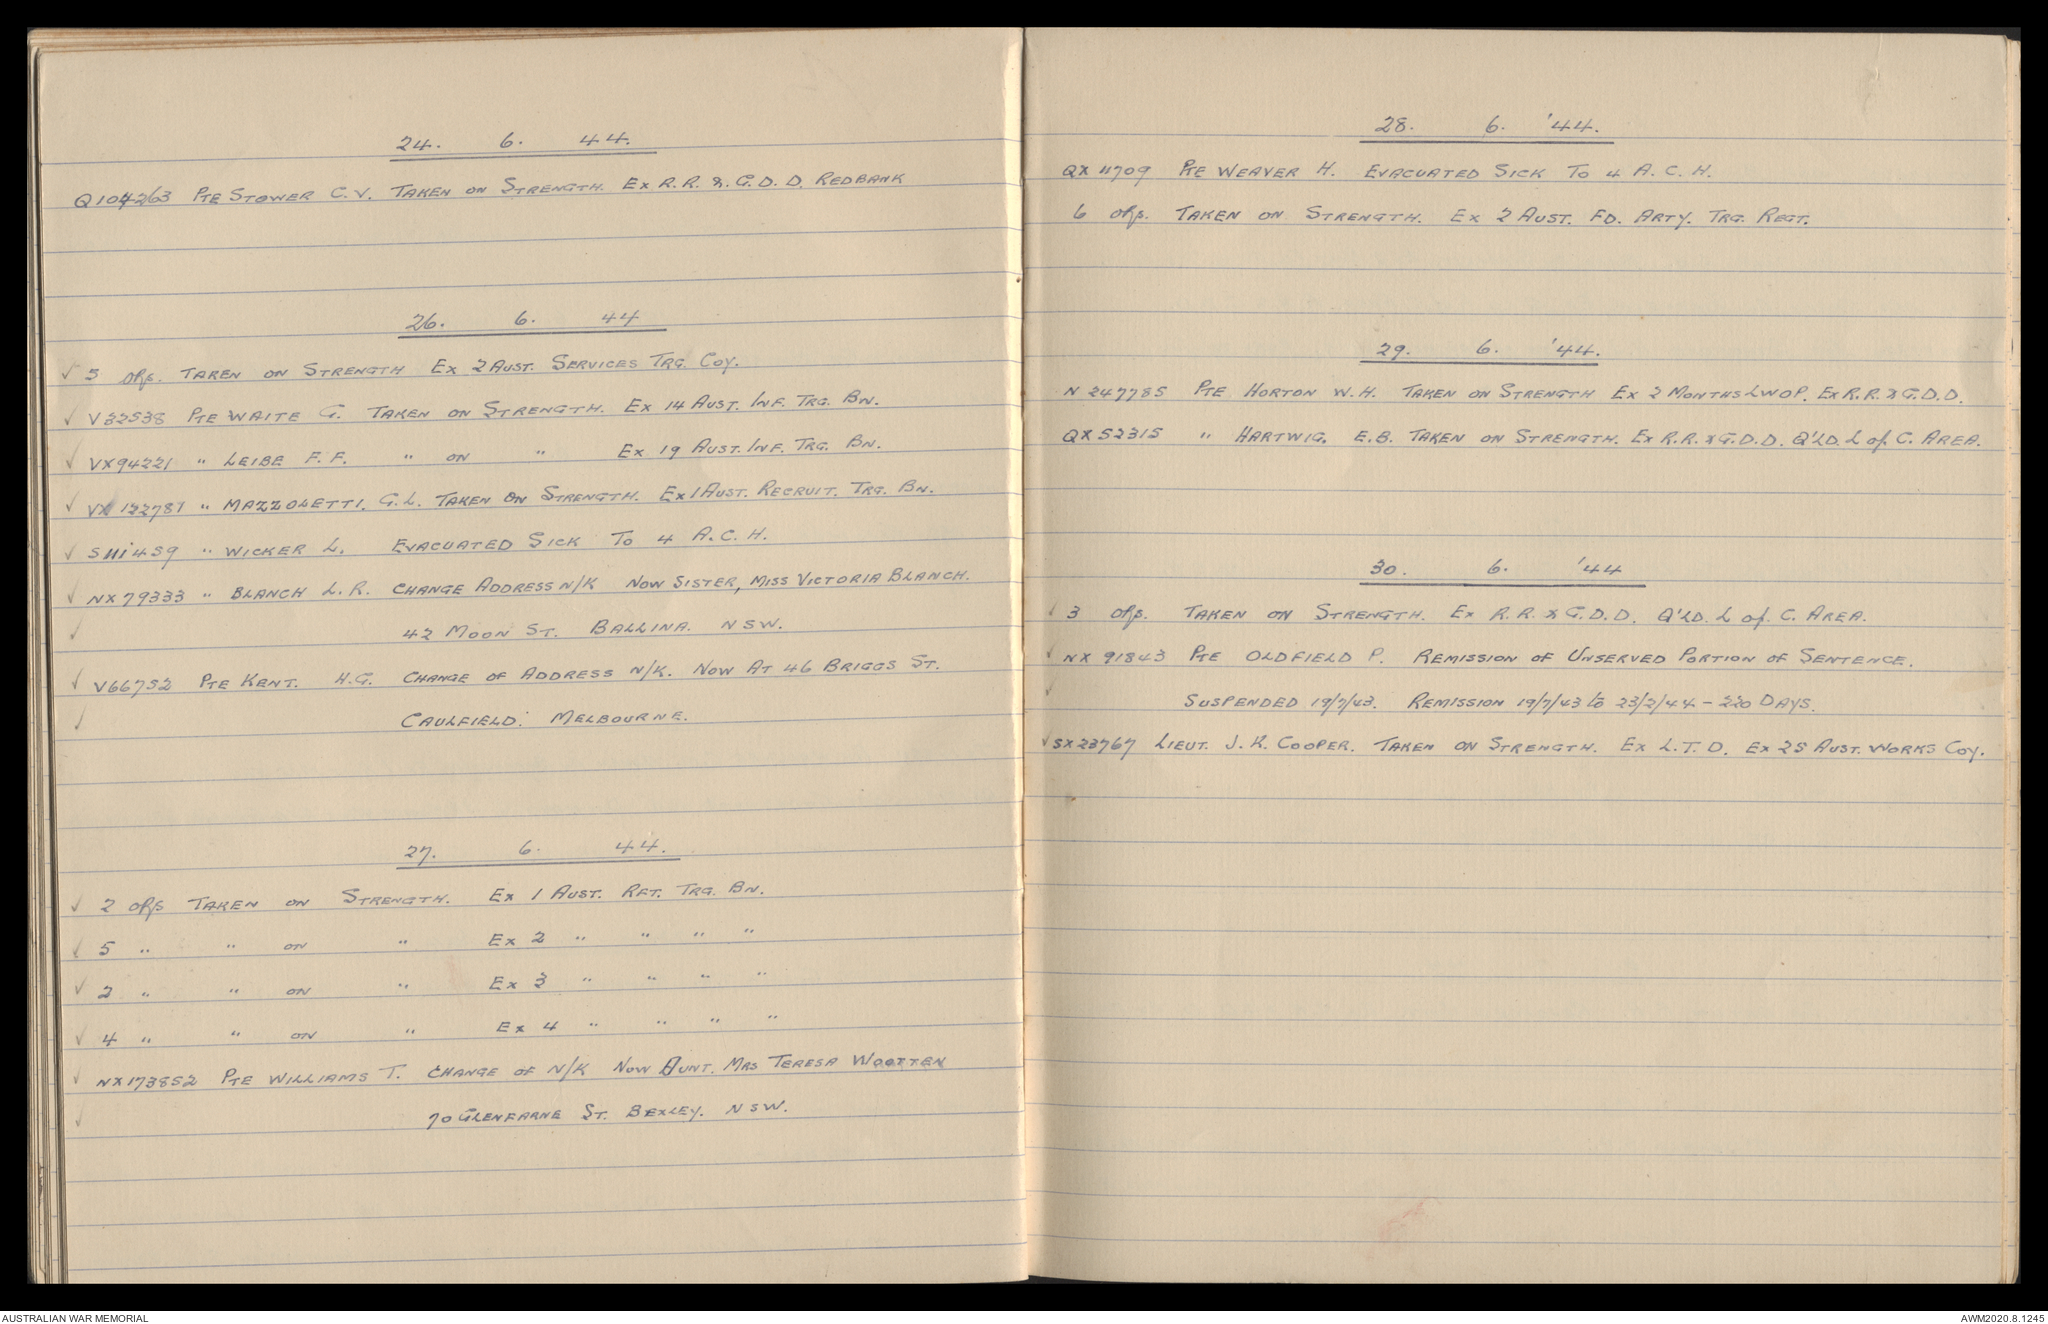 24. 6. 44.
Q104263 Pte STOWER C.V. TAKEN ON STRENGTH. Ex R.R. & G.D.D. REDBANK
26. 6. 44
✓ 5 ORs. TAKEN ON STRENGTH Ex 2 AUST. SERVICES TRG. COY.
✓ V32538 Pte WAITE G. TAKEN ON STRENGTH. Ex 14 AUST. INF. TRG. BN.
✓ VX94221 " LEIBE F.F. " ON " Ex 19 AUST. INF. TRG. BN.
✓ VX122787 " MAZZOLETTI. G.L. TAKEN ON STRENGTH. Ex 1 AUST. RECRUIT. TRG. BN.
✓ S111459 " WICKER L. EVACUATED SICK TO 4 A.C.H.
✓ NX79333 " BLANCH L.R. CHANGE ADDRESS N/K NOW SISTER, MISS VICTORIA BLANCH.
✓ 42 MOON ST. BALLINA. NSW.
✓ V66752 Pte KENT. H.G. CHANGE OF ADDRESS N/K. NOW AT 46 BRIGGS ST.
✓ CAULFIELD. MELBOURNE.
27. 6. 44.
✓ 2 ORs TAKEN ON STRENGTH. Ex 1 AUST. RFT. TRG. BN.
✓ 5 " " ON " Ex 2 " " " "
✓ 2 " " ON " Ex 3 " " " "
✓ 4 " " ON " Ex 4 " " " "
✓ NX173852 Pte WILLIAMS T. CHANGE OF N/K NOW AUNT. MRS TERESA WOOTTEN
✓ 70 GLENFARNE ST. BEXLEY. NSW.
28. 6. '44.
QX11709 Pte WEAVER H. EVACUATED SICK TO 4 A.C.H.
6 ORs. TAKEN ON STRENGTH. Ex 2 AUST. FD. ARTY. TRG. REGT.
29. 6. '44.
N247785 Pte HORTON W.H. TAKEN ON STRENGTH Ex 2 MONTHS LWOP. Ex R.R. & G.D.D.
QX52315 " HARTWIG. E.B. TAKEN ON STRENGTH. Ex R.R. & G.D.D. Q'LD. L of C. AREA.
30. 6. '44
✓ 3 ORs. TAKEN ON STRENGTH. Ex R.R. & G.D.D. Q'LD. L of C. AREA.
✓ NX91843 Pte OLDFIELD P. REMISSION OF UNSERVED PORTION OF SENTENCE.
✓ SUSPENDED 19/7/43. REMISSION 19/7/43 to 23/2/44 – 220 DAYS.
✓ SX23767 LIEUT. J.K. COOPER. TAKEN ON STRENGTH. Ex L.T.D. Ex 25 AUST. WORKS COY.
AUSTRALIAN WAR MEMORIAL
AWM2020.8.1245